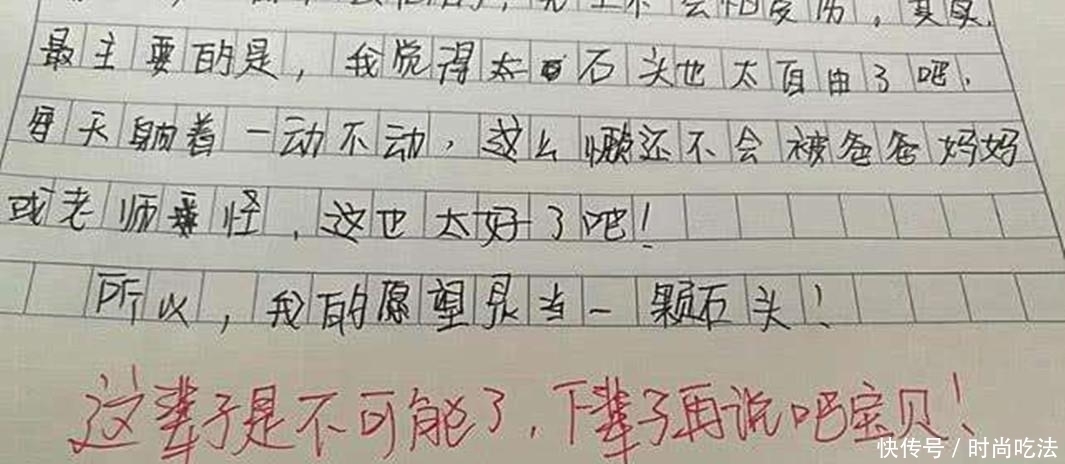 不会怕受伤，其实，
最主要的是，我觉得太石头也太自由了吧，
每天躺着一动不动，这么懒还不会被爸爸妈妈
或老师责怪，这也太好了吧！
所以，我的愿望是当一颗石头！
这辈子是不可能了，下辈子再说吧宝贝！
快传号／时尚吃法